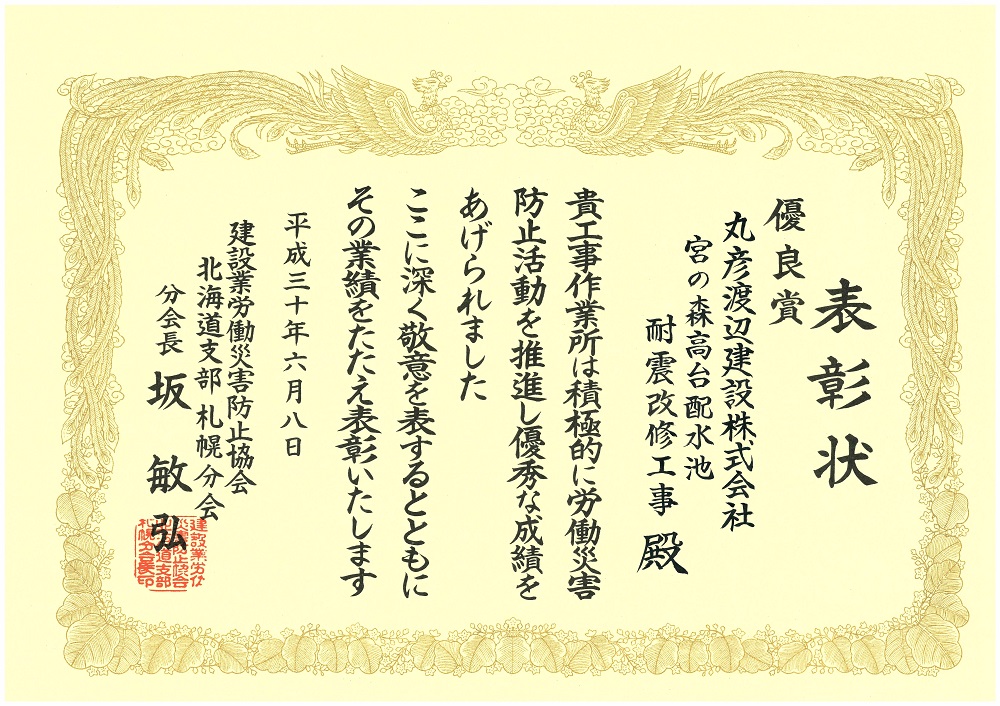 表彰状
優良賞
丸彦渡辺建設株式会社
宮の森高台配水池
耐震改修工事 殿
貴工事作業所は積極的に労働災害
防止活動を推進し優秀な成績を
あげられました
ここに深く敬意を表するとともに
その業績をたたえ表彰いたします
平成三十年六月八日
建設業労働災害防止協会
北海道支部札幌分会
分会長 坂 敏弘
建設業労働
災害防止協会
北海道支部
札幌分会長印